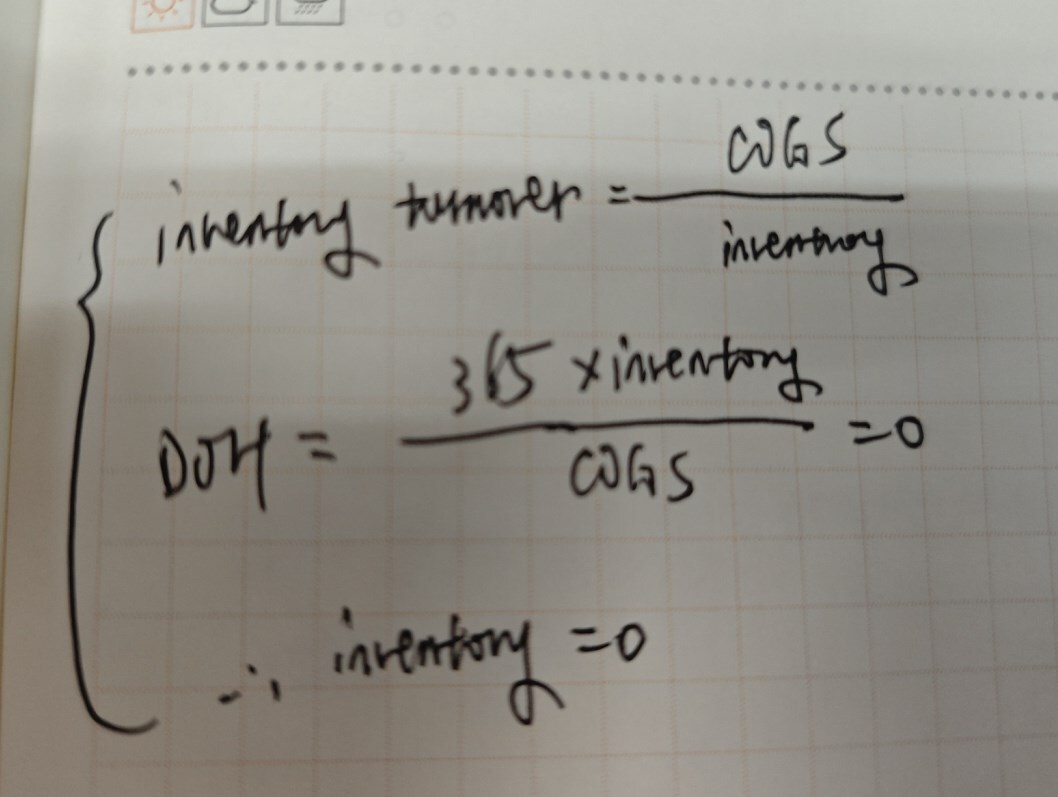 inventory turnover = COGS / inventory
DOH = 365 × inventory / COGS = 0
∴ inventory = 0